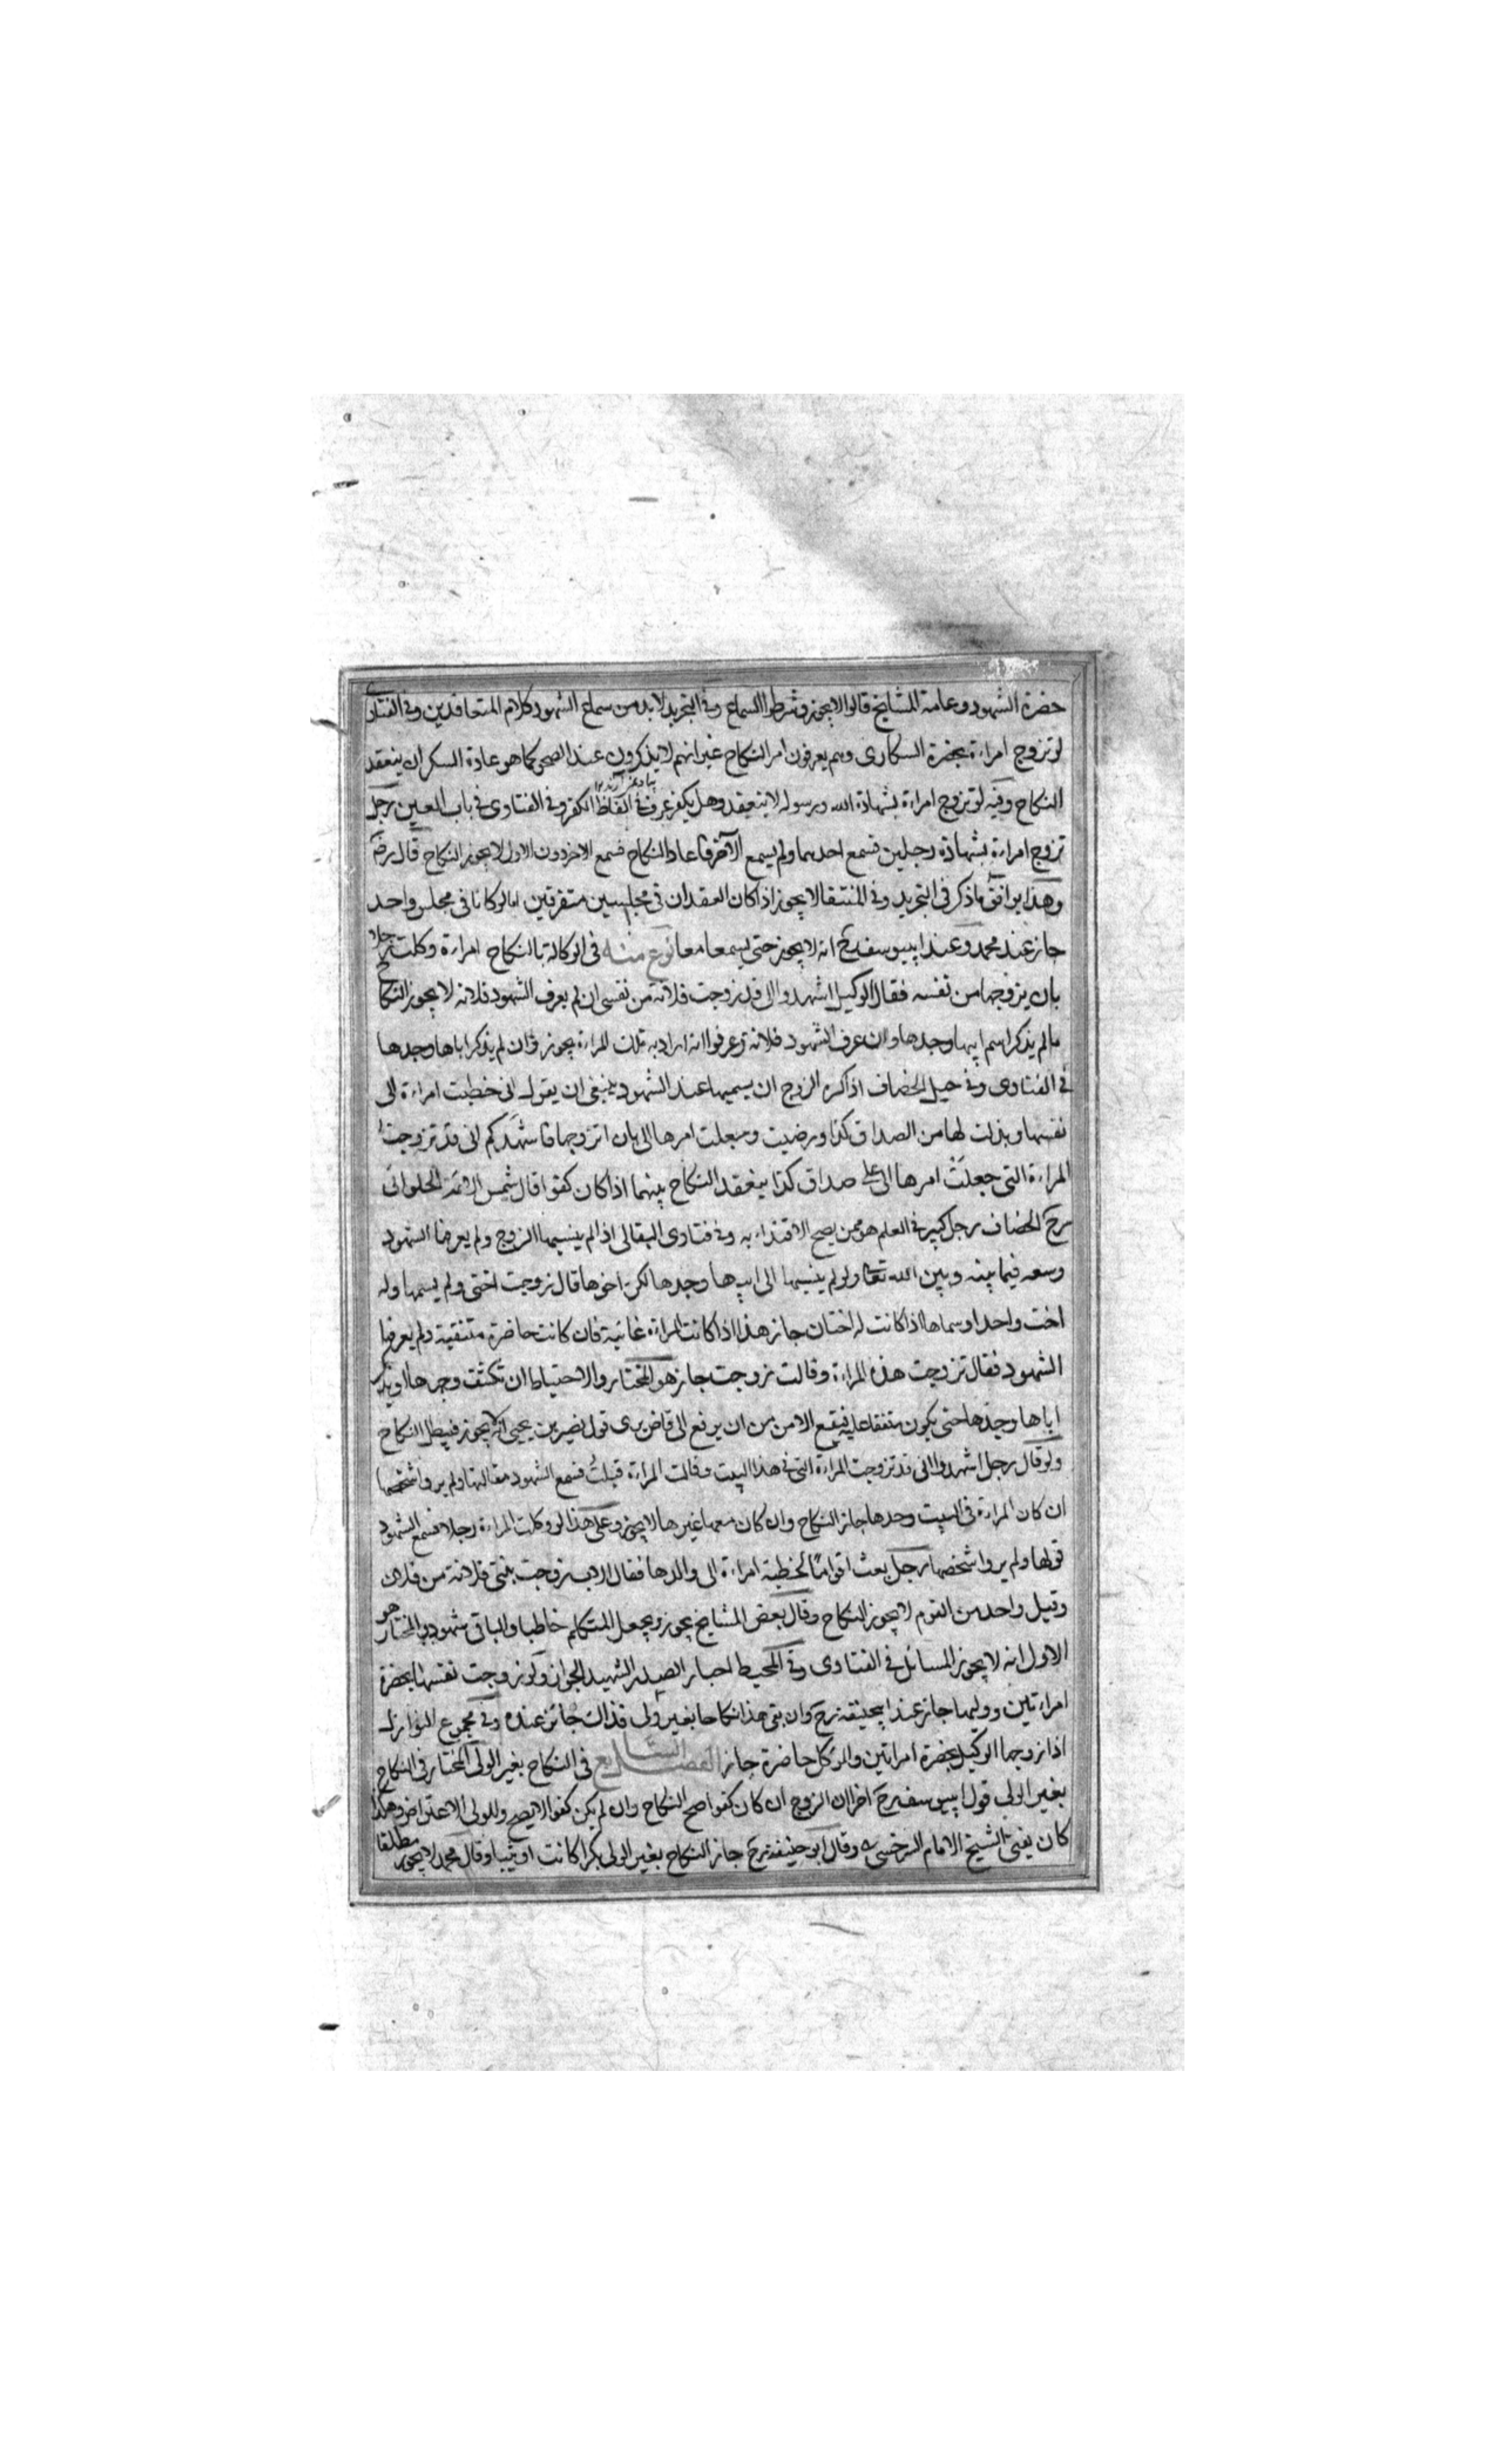 حضرة الشهود وعامة المشايخ قالوا لا يجوز وشرطوا السماع وفى التجريد لا بد من سماع الشهود كلام المتعاقدين وفى الفتاوى
لو تزوج امراءة بحضرة السكارى وهم يعرفون امر النكاح غير انهم لا يذكرون عند الصحو كما هو عادة السكران ينعقد
النكاح وفيه لو تزوج امراءة بشهادة الله ورسوله لا ينعقد وهل يكفر عرف فى الفاظ الكفر وفى الفتاوى فى باب العين رجل
تزوج امراءة بشهادة رجلين فسمع احدهما ولم يسمع الآخر فاعاد النكاح فسمع الاخر دون الاول لا يجوز النكاح قال رضه
وهذا يوافق ما ذكر فى التجريد وفى المنتقا لا يجوز اذا كان العقدان فى مجلسين متفرقين اما لو كانا فى مجلس واحد
جاز عند محمد وعند ابيوسف رح انه لا يجوز حتى يسمعا معا نوع منه فى الوكالة بالنكاح امراءة وكلت رجلا
بان يزوجها من نفسه فقال الوكيل اشهدوا انى قد زوجت فلانة من نفسى ان لم يعرف الشهود فلانه لا يجوز النكاح
ما لم يذكر اسم ابيها وجدها وان عرف الشهود فلانة وعرفوا انه اراد به تلك المراءة يجوز وان لم يذكر اباها وجدها
فى الفتاوى وفى حيل الخصاف اذا كره الزوج ان يسميها عند الشهود ينبغى ان يقول انى خطبت امراءة الى
نفسها وبذلت لها من الصداق كذا ورضيت وجعلت امرها الى بان اتزوجها فاشهدكم انى قد تزوجت
المراءة التى جعلت امرها الى على صداق كذا ينعقد النكاح بينهما اذا كان كفوا قال شمس الائمة الحلوانى
رح الخصاف رجل كبير فى العلم هو ممن يصح الاقتداء به وفى فتاوى البقالى اذا لم ينسبها الزوج ولم يعرفها الشهود
وسعه فيما بينه وبين الله تعا ولو لم ينسبها الى ابيها وجدها لكن اخوها قال زوجت اختى ولم يسمها وله
اخت واحد او سماها اذا كانت له اختان جاز هذا اذا كانت المراءة غائبة فان كانت حاضرة متنقبة ولم يعرفها
الشهود فقال تزوجت هذه المراءة وقالت زوجت جاز هو المختار والاحتياط ان تكشف وجهها او يذكر
اباها وجدها حتى يكون متفقا عليه فيقع الامن من ان يرفع الى قاض يرى قول نصير بن يحيى انه لا يجوز فيبطل النكاح
ولو قال رجل اشهدوا انى قد تزوجت المراءة التى فى هذا البيت وقالت المراءة قبلت فسمع الشهود مقالتها ولم يروا شخصها
ان كان المراءة فى البيت وحدها جاز النكاح وان كان معها غيرها لا يجوز وعلى هذا لو وكلت المراءة رجلا فسمع الشهود
قولها ولم يروا شخصها رجل بعث اقواما لخطبة امراءة الى والدها فقال الاب زوجت بنتى فلانة من فلان
وقبل واحد من القوم لا يجوز النكاح وقال بعض المشايخ يجوز ويجعل المتكلم خاطبا والباقى شهودا والمختار هو
الاول انه لا يجوز المسائل فى الفتاوى وفى المحيط اختيار الصدر الشهيد الجواز ولو زوجت نفسها بحضرة
امراءتين ووليها جاز عند ابيحنيفة رح وان بقى هذا نكاحا بغير ولى فذاك جائز عنده وفى مجموع النوازل
اذا زوجها الوكيل بحضرة امراتين والموكل حاضرة جاز الفصل السابع فى النكاح بغير الولى المختار فى النكاح
بغير الولى قول ابيوسف رح اخرا ان الزوج ان كان كفوا صح النكاح وان لم يكن كفوا لا يصح وللولى الاعتراض وهكذا
كان يفتى الشيخ الامام السرخسى وقال ابو حنيفة رح جاز النكاح بغير الولى بكرا كانت او ثيبا وقال محمد لا يجوز مطلقا